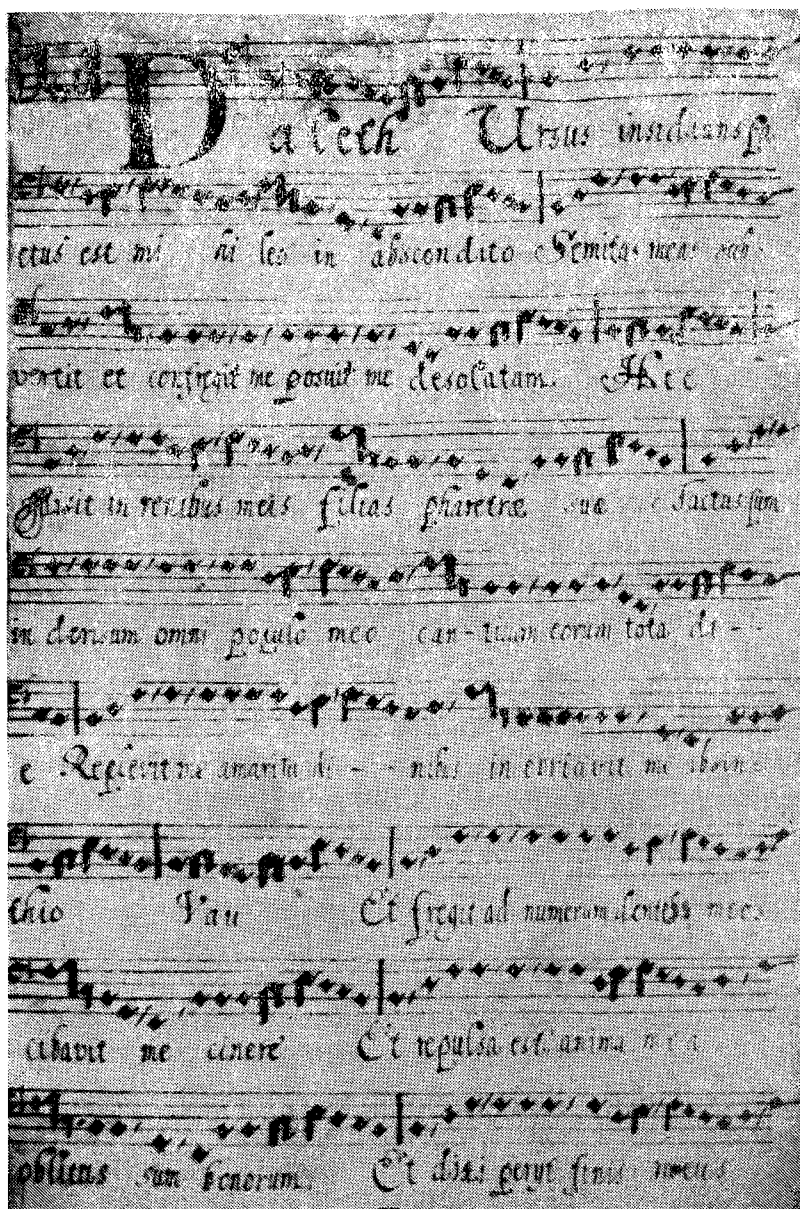 Daleth Ursus insidians fa
ctus est mi hi leo in abscondito Semitas meas sub
vertit et confregit me posuit me desolatam. He e
Misit in renibus meis filias pharetræ suæ Factus sum
in derisum omni populo meo can - ticum eorum tota di - -
e Replevit me amaritu di - - nibus in ebriavit me absin
thio Vau Et fregit ad numerum dentes meos
cibavit me cinere Et repulsa est anima mea
oblitus sum bonorum. Et dixi periit finis meus